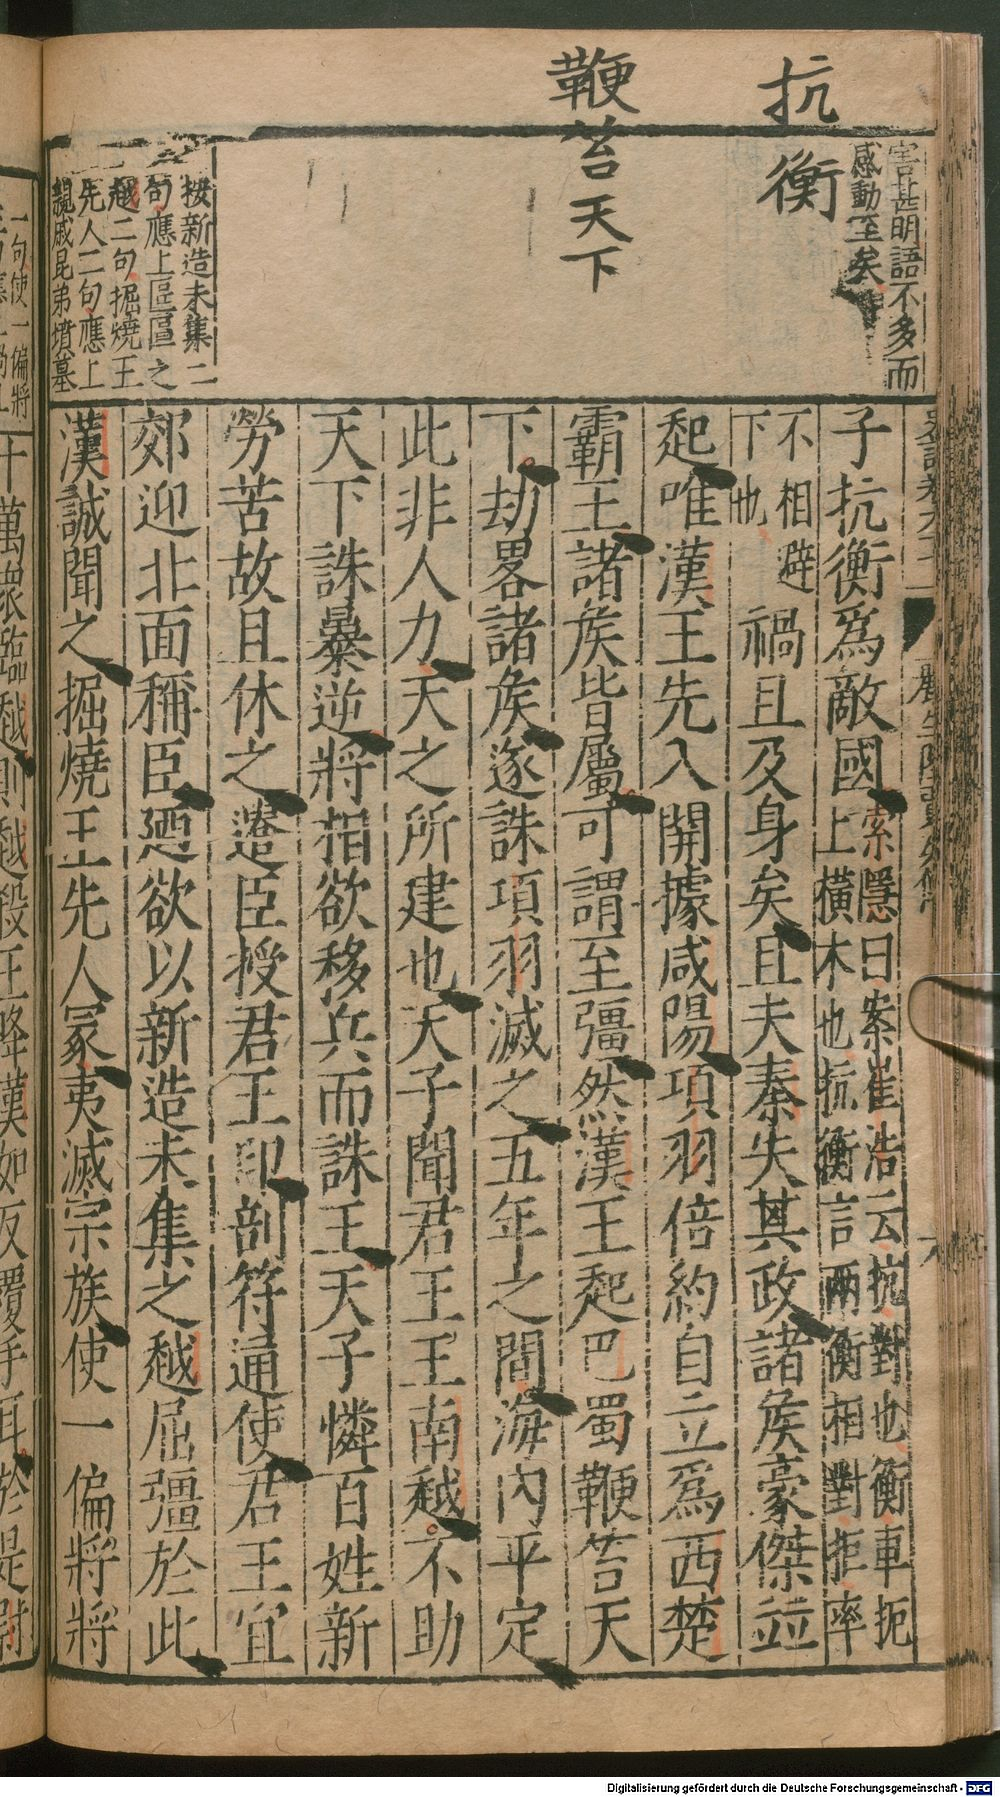 抗衡
鞭笞天下
害甚明語不多而
感動至矣
按新造未集二
句應上區區之
越二句掘燒王
先人二句應上
親戚昆弟墳墓
子抗衡爲敵國索隱曰案崔浩云抗對也衡車扼
上橫木也抗衡言兩衡相對拒率
不相避
下也禍且及身矣且夫秦失其政諸矦豪傑並
起唯漢王先入關據咸陽項羽倍約自立爲西楚
霸王諸矦皆屬可謂至彊然漢王起巴蜀鞭笞天
下劫畧諸矦遂誅項羽滅之五年之間海內平定
此非人力天之所建也天子聞君王王南越不助
天下誅暴逆將相欲移兵而誅王天子憐百姓新
勞苦故且休之遣臣授君王印剖符通使君王宜
郊迎北面稱臣廼欲以新造未集之越屈彊於此
漢誠聞之掘燒王先人冢夷滅宗族使一偏將將
一句使一偏將
十萬眾臨越則越殺王降漢如反覆手耳於是尉
Digitalisierung gefördert durch die Deutsche Forschungsgemeinschaft - DFG